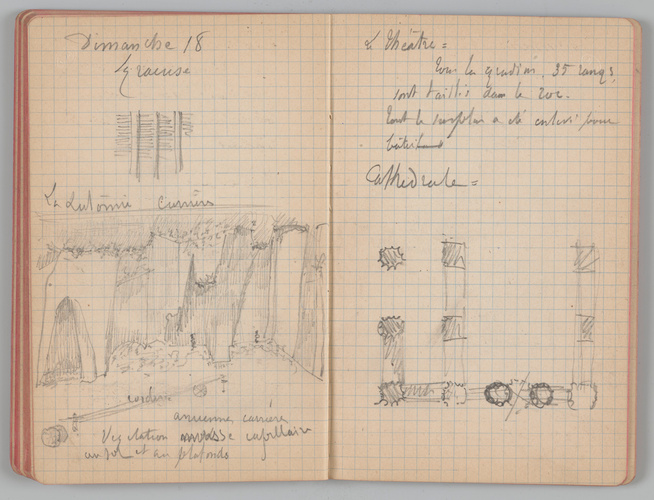 Dimanche 18
Syracuse
La Latomie carrières
corderie
ancienne carrière
Végétation mousse capillaire
au sol et au plafonds
Le théâtre =
Tous les gradins, 35 rangs,
sont taillés dans le roc.
Tout le surplus a été enlevé pour
bâtir
Cathédrale =